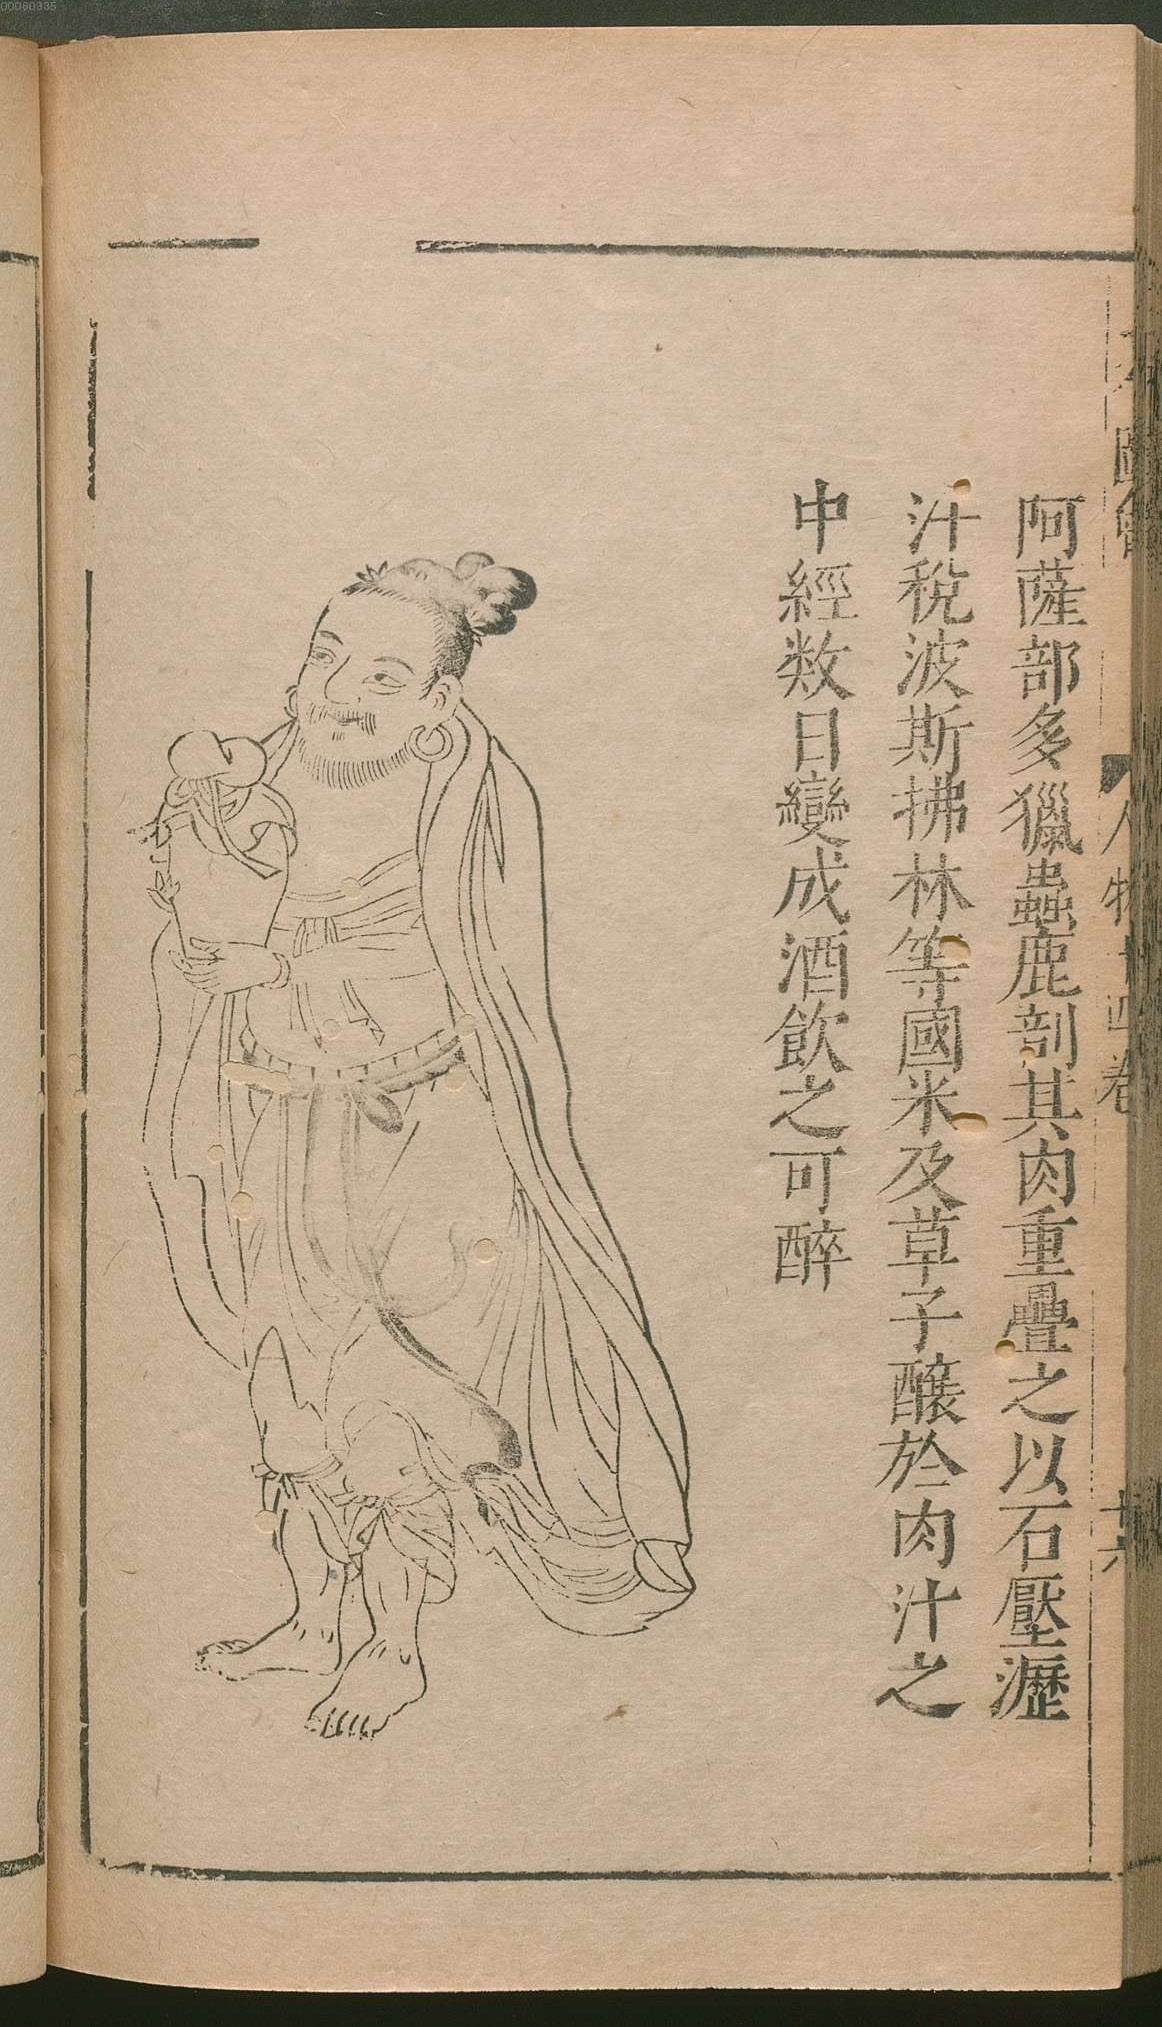 阿薩部多獵蟲鹿剖其肉重疊之以石壓瀝
汁稅波斯拂林等國米及草子釀於肉汁之
中經数日變成酒飲之可醉
圖會
人物十四卷
廿六
00060335